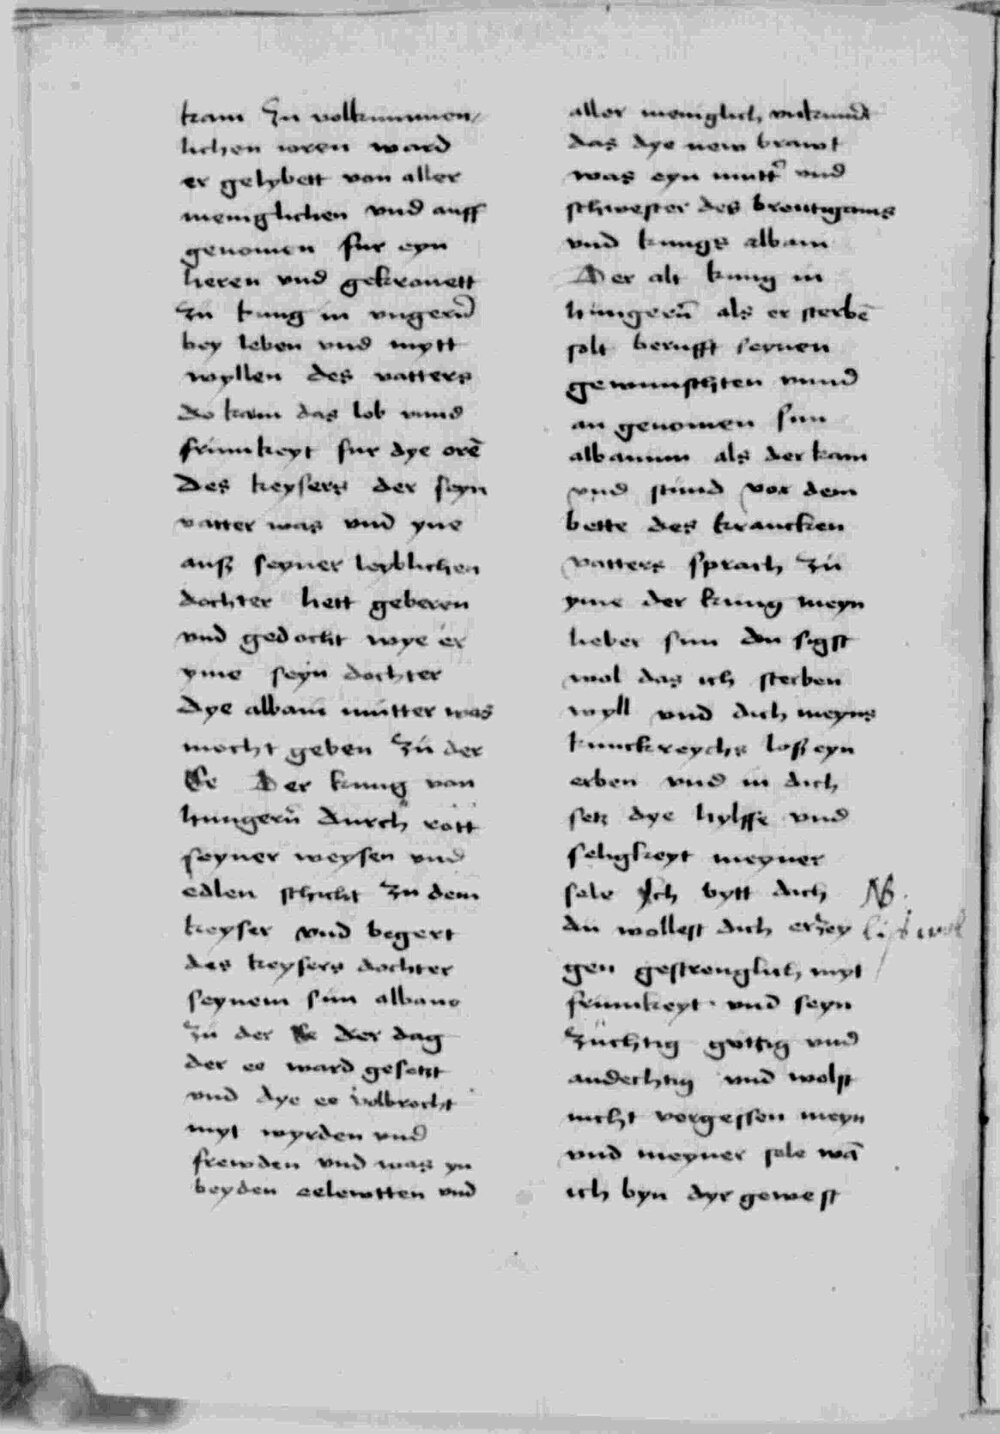 kam zu volkummen/
lichen ioren ward
er gelybett von aller
meniglichen vnd auff
genomen fur eyn
heren vnd gekronett
zu kung in vngern̄
bey leben vnd mytt
wyllen des vatters
do kam das lob vnnd
frumkeyt fur dye orē
Des keysers der seyn
vatter was vnd yne
auß seyner leyblichen
dochter hett geberen
vnd gedocht wye er
yme seyn dochter
dye albani mutter was
mocht geben zu der
Ee Der kung von
hungern̄ durch rött
seyner weysen vnd
edlen schicht zu dem
keyser vnd begert
des keysers dochter
seynem sun albano
zu der Ee der dag
der ee ward gesetzt
vnd dye ee volbrocht
myt wyrden vnd
frewden vnd was yn
beyden eelewtten vnd
aller meniglich vnkundt
das dye new brawt
was eyn muttr̄ vnd
schwester des breutigams
vnd kungs albani
Der alt kung in
hungern̄ als er sterbē
solt berufft seynen
gewunschten vnnd
an genomen sun
albanum als der kam
vnd stund vor dem
bette des krancken
vatters sprach zu
yme der kung meyn
lieber sun du sigst
wol das ich sterben
wyll vnd dich meyns
kunckreychs loß eyn
erben vnd in dich
setz dye hylffe vnd
seligkeyt meyner
sele Ich bytt dich NB.
du wollest dich erzey liß wol
gen gestrenglich myt
frumkeyt vnd seyn
züchtig güttig vnd
andechtig vnd wolst
nicht vergessen meyn
vnd meyner sele wā
ich byn dyr gewest